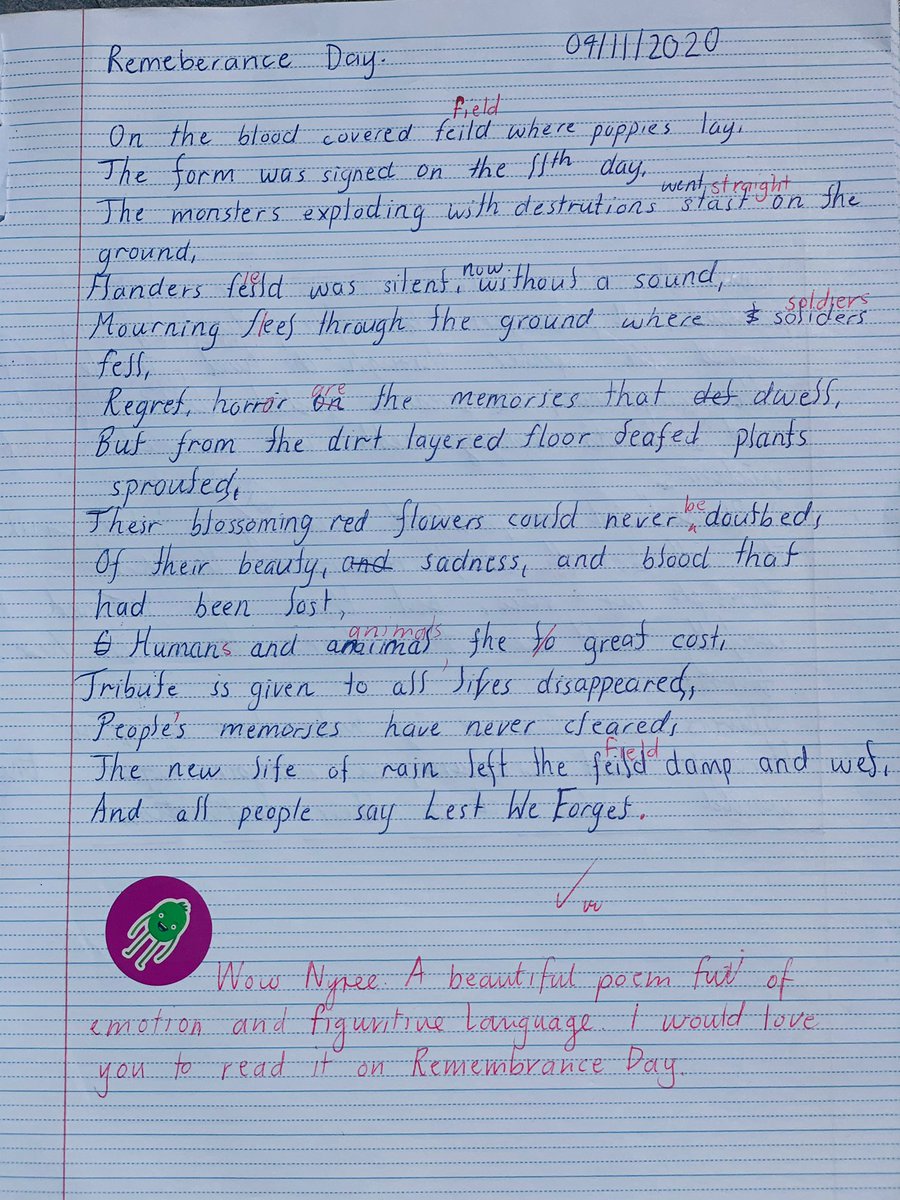 Remeberance Day. 09/11/2020
field
On the blood covered feild where poppies lay,
The form was signed on the 11th day,
went straight
The monsters exploding with destrutions stast on the
ground,
Flanders feild was silent, now without a sound,
soldiers
Mourning flees through the ground where soliders
fell,
are
Regret, horror on the memories that def dwell,
But from the dirt layered floor leafed plants
sprouted,
be
Their blossoming red flowers could never doutbed,
Of their beauty, and sadness, and blood that
had been lost,
animals
Humans and the to great cost,
Tribute is given to all lifes disappeared,
People's memories have never cleared,
field
The new life of rain left the feild damp and wet,
And all people say Lest We Forget.
Wow Nyree. A beautiful poem full of
emotion and figuritive language. I would love
you to read it on Remembrance Day.